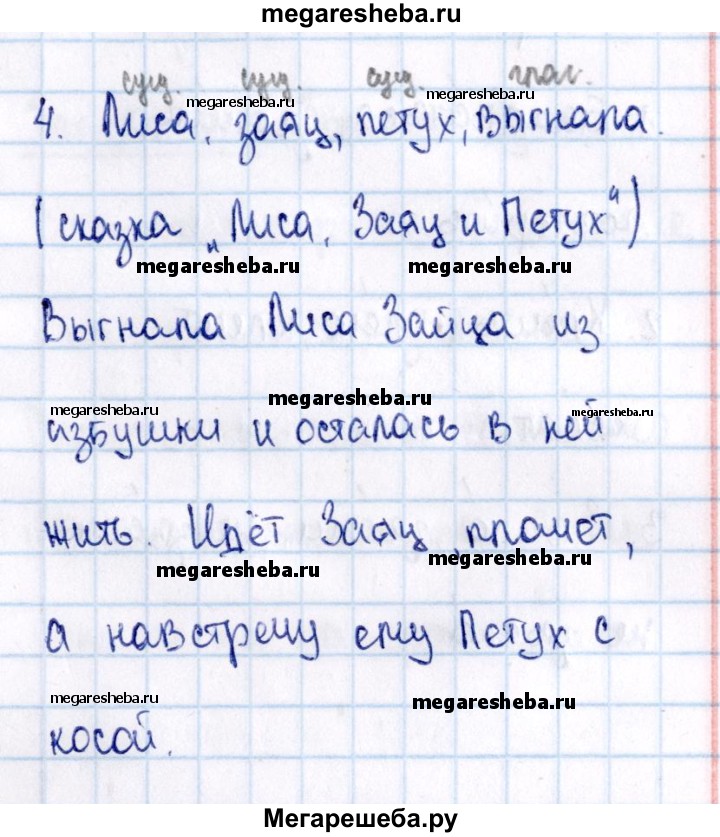 megaresheba.ru
сущ. сущ. сущ. глаг.
megaresheba.ru megaresheba.ru
4. Лиса, заяц, петух, выгнала.
(сказка „Лиса, Заяц и Петух“)
megaresheba.ru megaresheba.ru
Выгнала Лиса Зайца из
megaresheba.ru megaresheba.ru megaresheba.ru
избушки и осталась в ней
жить. Идёт Заяц, плачет,
megaresheba.ru megaresheba.ru
а навстречу ему Петух с
megaresheba.ru megaresheba.ru
косой.
Мегарешеба.ру